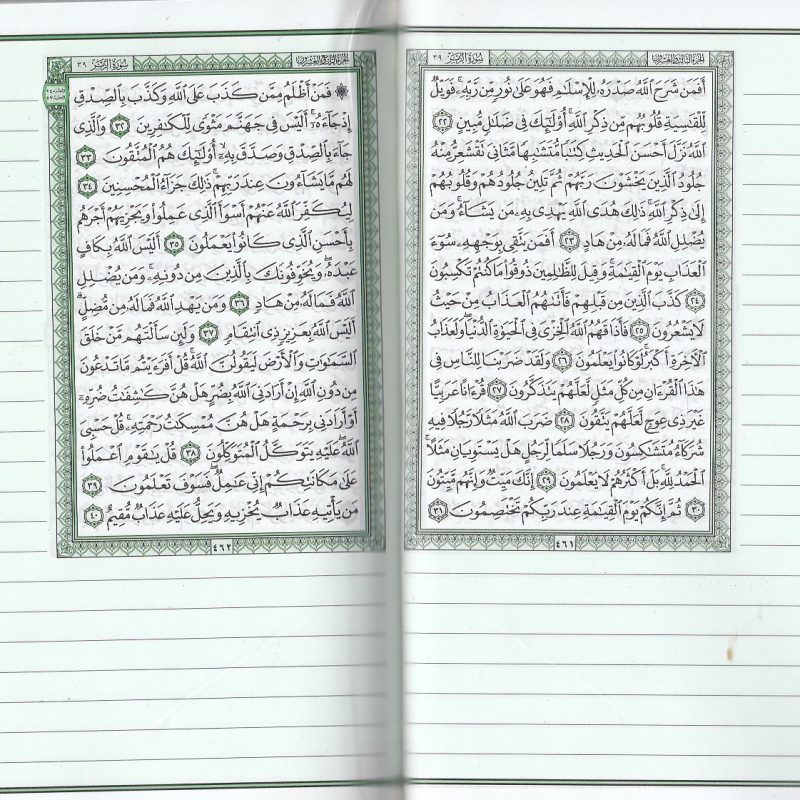 سورة الزمر ٣٩
الجزء الثالث والعشرون
أَفَمَن شَرَحَ ٱللَّهُ صَدْرَهُۥ لِلْإِسْلَـٰمِ فَهُوَ عَلَىٰ نُورٍ مِّن رَّبِّهِۦ ۚ فَوَيْلٌ
لِّلْقَـٰسِيَةِ قُلُوبُهُم مِّن ذِكْرِ ٱللَّهِ ۚ أُو۟لَـٰٓئِكَ فِى ضَلَـٰلٍ مُّبِينٍ ٢٢
ٱللَّهُ نَزَّلَ أَحْسَنَ ٱلْحَدِيثِ كِتَـٰبًا مُّتَشَـٰبِهًا مَّثَانِىَ تَقْشَعِرُّ مِنْهُ
جُلُودُ ٱلَّذِينَ يَخْشَوْنَ رَبَّهُمْ ثُمَّ تَلِينُ جُلُودُهُمْ وَقُلُوبُهُمْ
إِلَىٰ ذِكْرِ ٱللَّهِ ۚ ذَٰلِكَ هُدَى ٱللَّهِ يَهْدِى بِهِۦ مَن يَشَآءُ ۚ وَمَن
يُضْلِلِ ٱللَّهُ فَمَا لَهُۥ مِنْ هَادٍ ٢٣ أَفَمَن يَتَّقِى بِوَجْهِهِۦ سُوٓءَ
ٱلْعَذَابِ يَوْمَ ٱلْقِيَـٰمَةِ ۚ وَقِيلَ لِلظَّـٰلِمِينَ ذُوقُوا۟ مَا كُنتُمْ تَكْسِبُونَ
٢٤ كَذَّبَ ٱلَّذِينَ مِن قَبْلِهِمْ فَأَتَىٰهُمُ ٱلْعَذَابُ مِنْ حَيْثُ
لَا يَشْعُرُونَ ٢٥ فَأَذَاقَهُمُ ٱللَّهُ ٱلْخِزْىَ فِى ٱلْحَيَوٰةِ ٱلدُّنْيَا ۖ وَلَعَذَابُ
ٱلْـَٔاخِرَةِ أَكْبَرُ ۚ لَوْ كَانُوا۟ يَعْلَمُونَ ٢٦ وَلَقَدْ ضَرَبْنَا لِلنَّاسِ فِى
هَـٰذَا ٱلْقُرْءَانِ مِن كُلِّ مَثَلٍ لَّعَلَّهُمْ يَتَذَكَّرُونَ ٢٧ قُرْءَانًا عَرَبِيًّا
غَيْرَ ذِى عِوَجٍ لَّعَلَّهُمْ يَتَّقُونَ ٢٨ ضَرَبَ ٱللَّهُ مَثَلًا رَّجُلًا فِيهِ
شُرَكَآءُ مُتَشَـٰكِسُونَ وَرَجُلًا سَلَمًا لِّرَجُلٍ هَلْ يَسْتَوِيَانِ مَثَلًا ۚ
ٱلْحَمْدُ لِلَّهِ ۚ بَلْ أَكْثَرُهُمْ لَا يَعْلَمُونَ ٢٩ إِنَّكَ مَيِّتٌ وَإِنَّهُم مَّيِّتُونَ
٣٠ ثُمَّ إِنَّكُمْ يَوْمَ ٱلْقِيَـٰمَةِ عِندَ رَبِّكُمْ تَخْتَصِمُونَ ٣١
٤٦١
الجزء الرابع والعشرون
سورة الزمر ٣٩
۞ فَمَنْ أَظْلَمُ مِمَّن كَذَبَ عَلَى ٱللَّهِ وَكَذَّبَ بِٱلصِّدْقِ
إِذْ جَآءَهُۥٓ ۚ أَلَيْسَ فِى جَهَنَّمَ مَثْوًى لِّلْكَـٰفِرِينَ ٣٢ وَٱلَّذِى
جَآءَ بِٱلصِّدْقِ وَصَدَّقَ بِهِۦٓ ۙ أُو۟لَـٰٓئِكَ هُمُ ٱلْمُتَّقُونَ ٣٣
لَهُم مَّا يَشَآءُونَ عِندَ رَبِّهِمْ ۚ ذَٰلِكَ جَزَآءُ ٱلْمُحْسِنِينَ ٣٤
لِيُكَفِّرَ ٱللَّهُ عَنْهُمْ أَسْوَأَ ٱلَّذِى عَمِلُوا۟ وَيَجْزِيَهُمْ أَجْرَهُم
بِأَحْسَنِ ٱلَّذِى كَانُوا۟ يَعْمَلُونَ ٣٥ أَلَيْسَ ٱللَّهُ بِكَافٍ
عَبْدَهُۥ ۖ وَيُخَوِّفُونَكَ بِٱلَّذِينَ مِن دُونِهِۦ ۚ وَمَن يُضْلِلِ
ٱللَّهُ فَمَا لَهُۥ مِنْ هَادٍ ٣٦ وَمَن يَهْدِ ٱللَّهُ فَمَا لَهُۥ مِن مُّضِلٍّ ۗ
أَلَيْسَ ٱللَّهُ بِعَزِيزٍ ذِى ٱنتِقَامٍ ٣٧ وَلَئِن سَأَلْتَهُم مَّنْ خَلَقَ
ٱلسَّمَـٰوَٰتِ وَٱلْأَرْضَ لَيَقُولُنَّ ٱللَّهُ ۚ قُلْ أَفَرَءَيْتُم مَّا تَدْعُونَ
مِن دُونِ ٱللَّهِ إِنْ أَرَادَنِىَ ٱللَّهُ بِضُرٍّ هَلْ هُنَّ كَـٰشِفَـٰتُ ضُرِّهِۦٓ
أَوْ أَرَادَنِى بِرَحْمَةٍ هَلْ هُنَّ مُمْسِكَـٰتُ رَحْمَتِهِۦ ۚ قُلْ حَسْبِىَ
ٱللَّهُ ۖ عَلَيْهِ يَتَوَكَّلُ ٱلْمُتَوَكِّلُونَ ٣٨ قُلْ يَـٰقَوْمِ ٱعْمَلُوا۟
عَلَىٰ مَكَانَتِكُمْ إِنِّى عَـٰمِلٌ ۖ فَسَوْفَ تَعْلَمُونَ ٣٩
مَن يَأْتِيهِ عَذَابٌ يُخْزِيهِ وَيَحِلُّ عَلَيْهِ عَذَابٌ مُّقِيمٌ ٤٠
٤٦٢